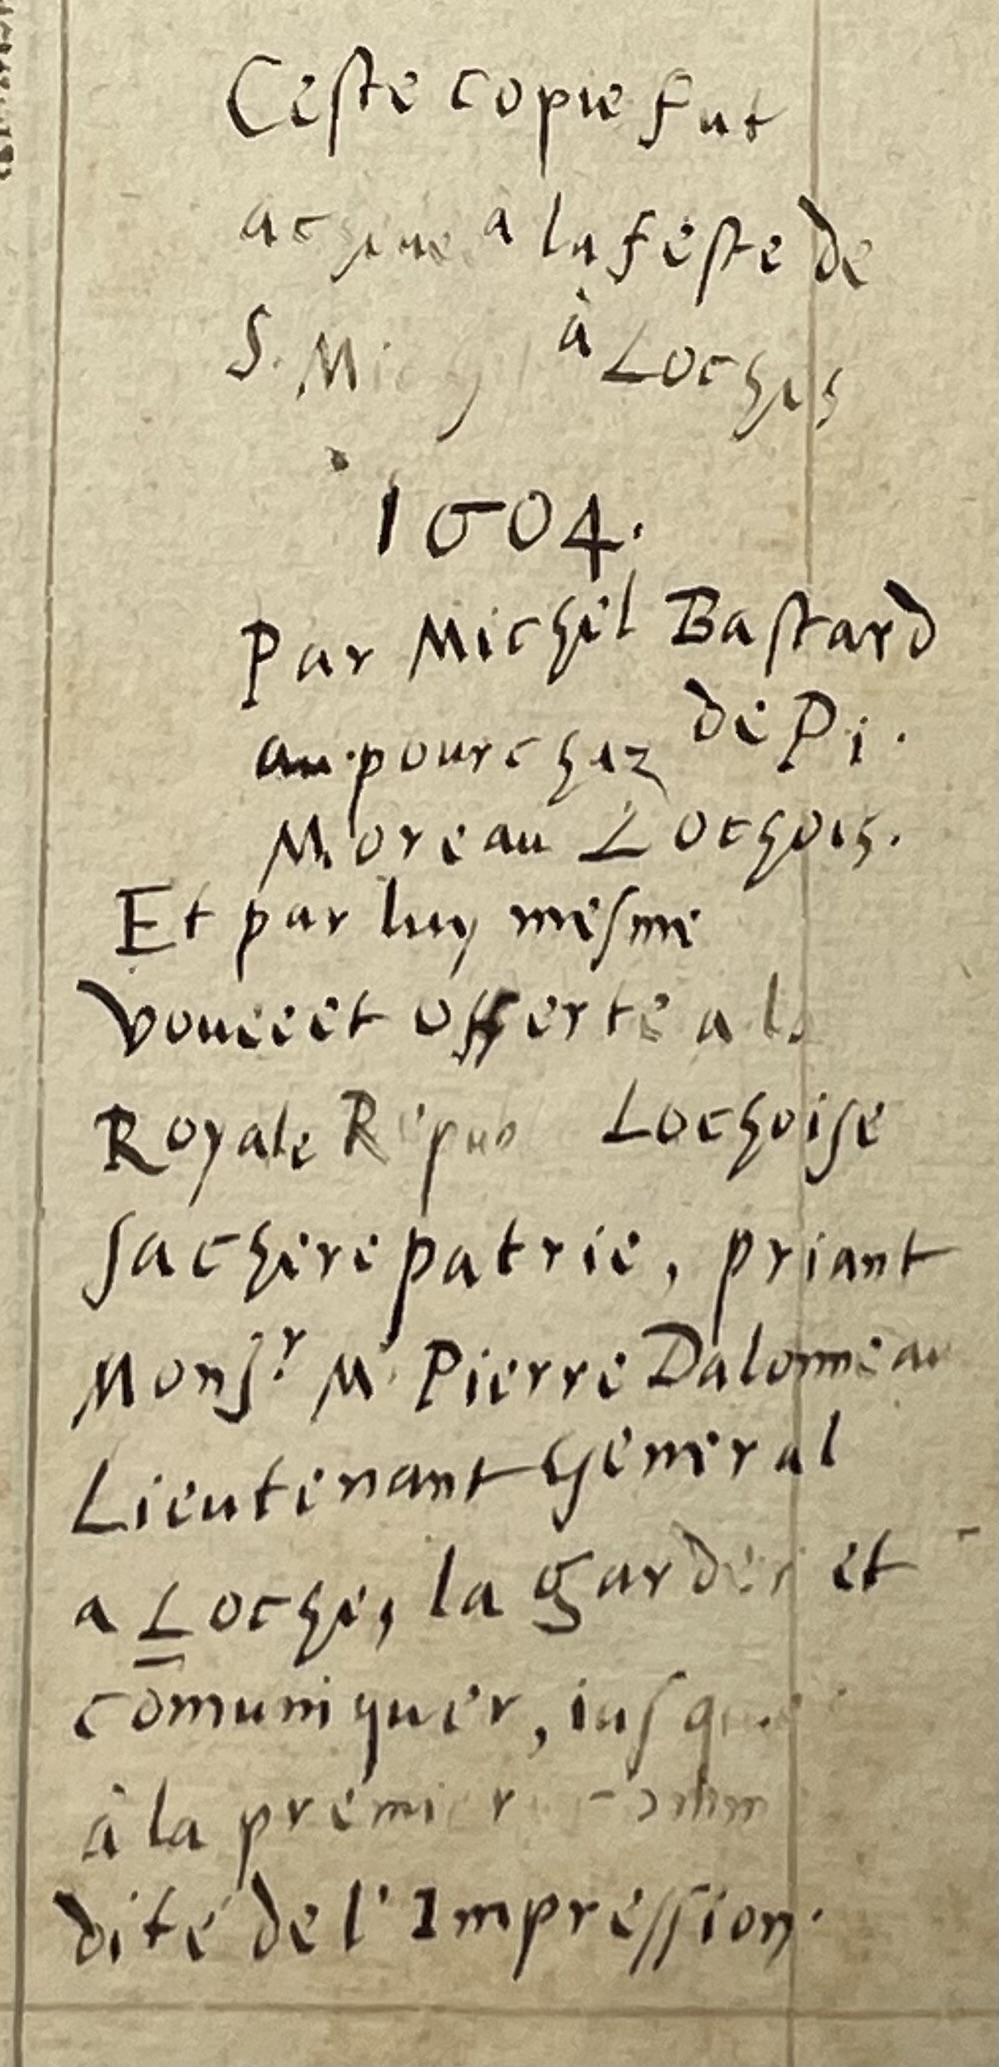 Ceste copie fut
à la feste de
S. Michel à Loches
1604.
Par Michel Bastard
au pourchaz de Pi.
Moreau Lochois.
Et par luy mesme
vouee et offerte a la
Royale Repub Lochoise
sa chere patrie, priant
Monsr. M. Pierre Dalonneau
Lieutenant General
a Loche, la garder et
cōmuniquer, iusques
à la premiere
dité de l'Impression.